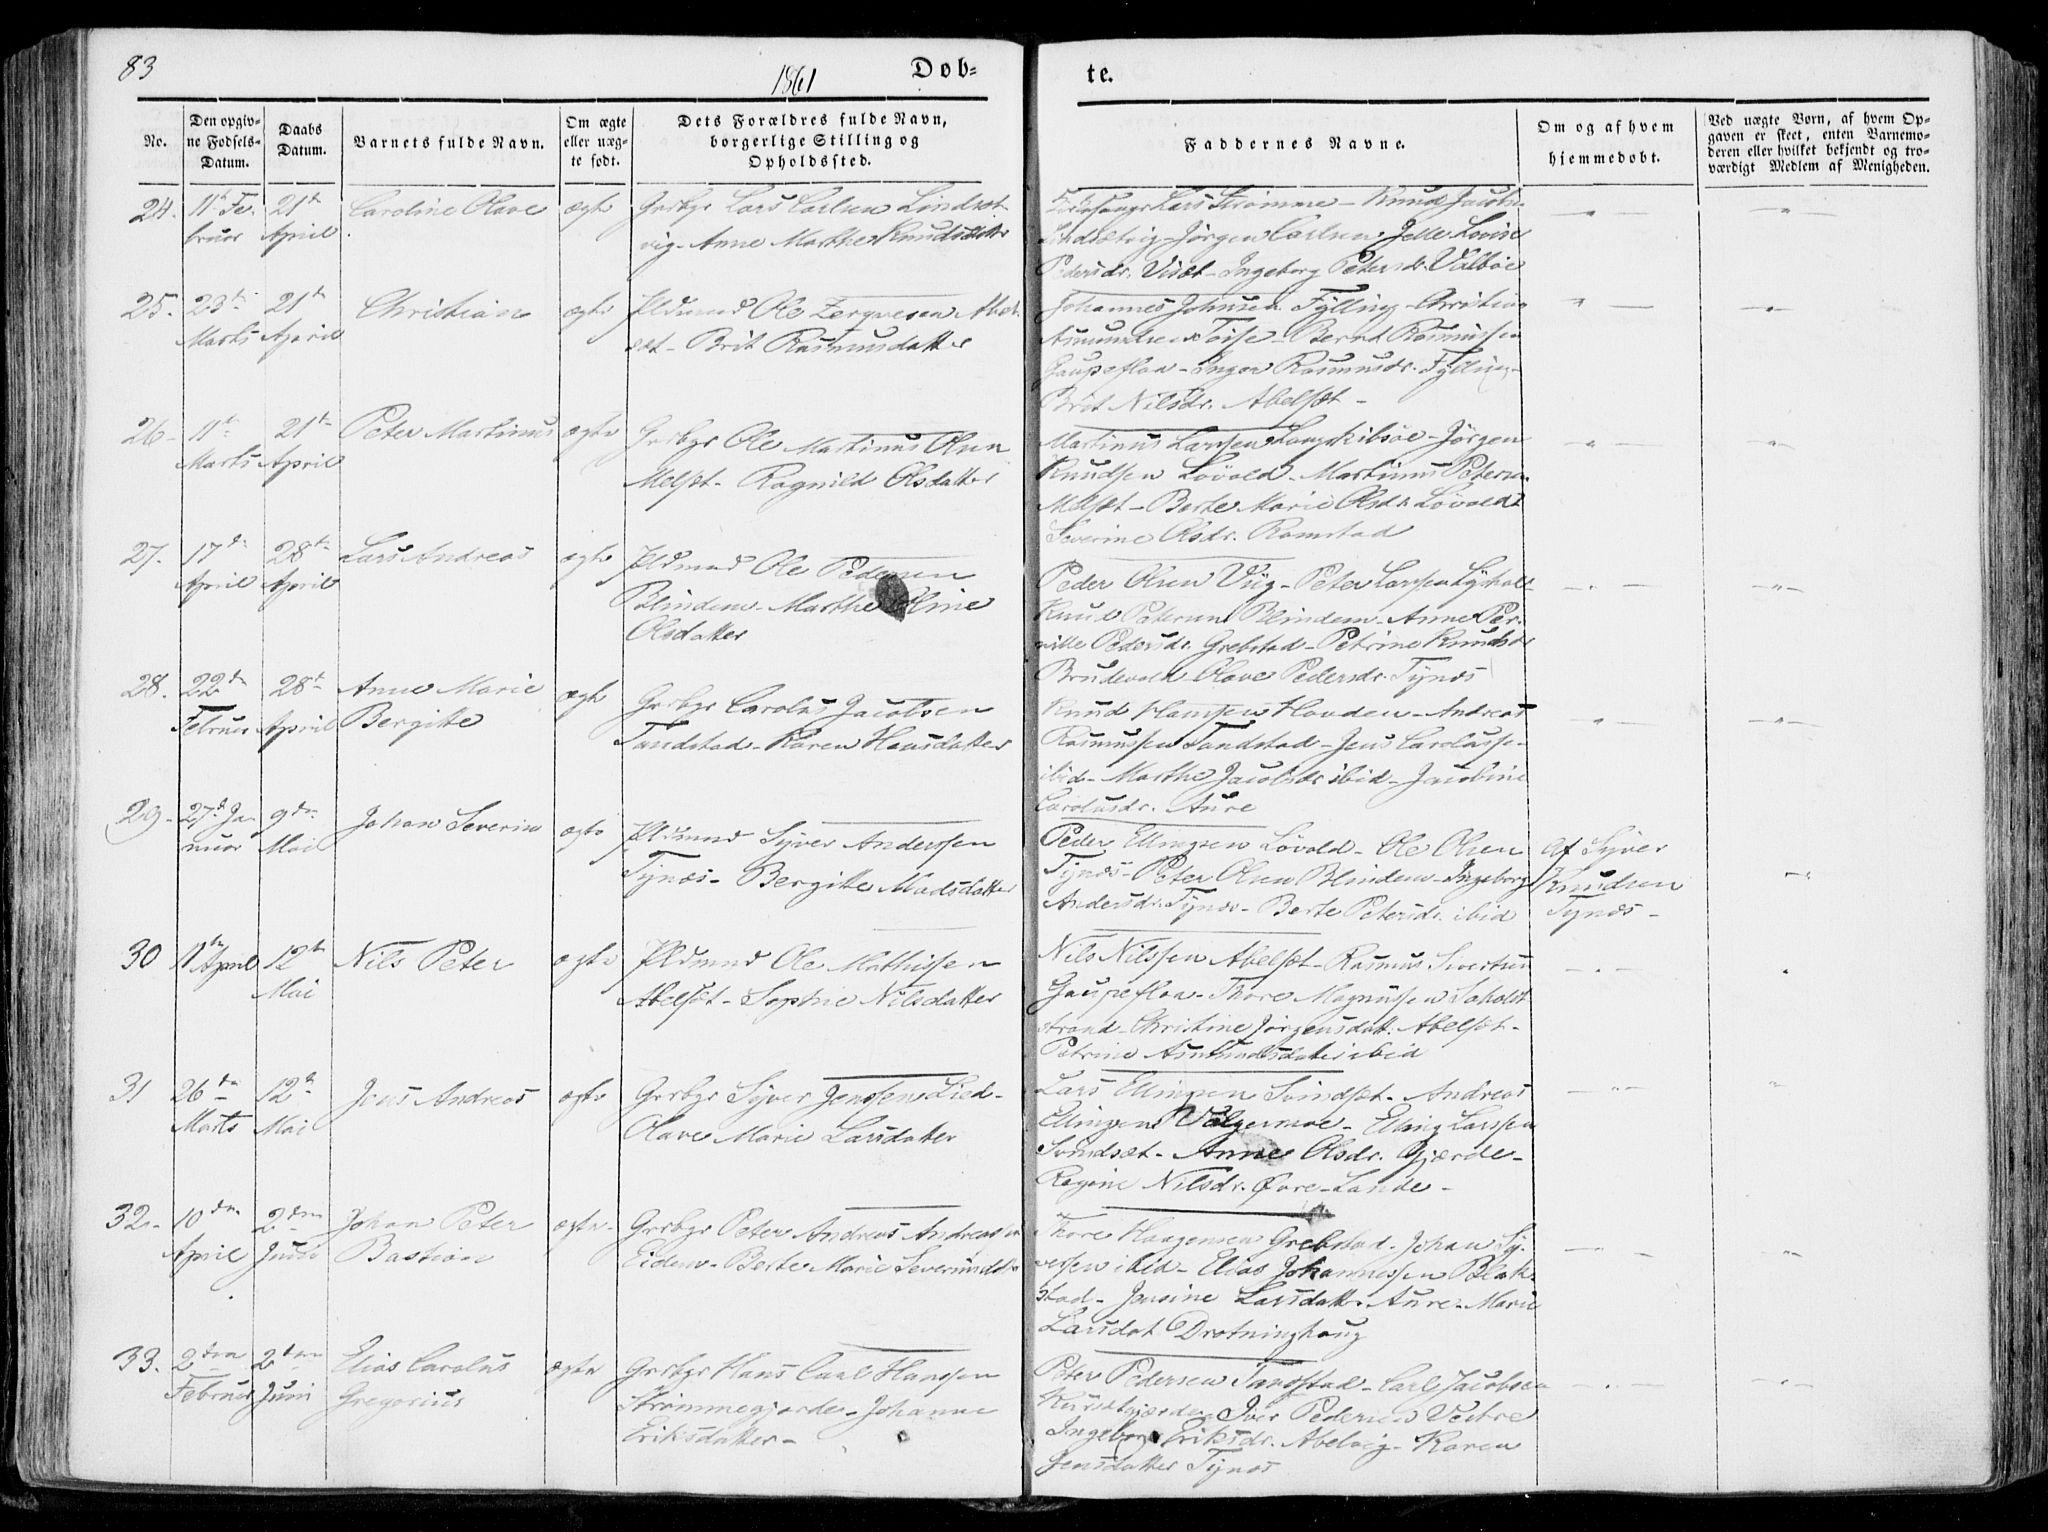 83
1861
Døb=
te.
No.
Den opgiv-
ne Fødsels-
Datum.
Daabs
Datum.
Barnets fulde Navn.
Om ægte
eller uæg-
te født.
Dets Forældres fulde Navn,
borgerlige Stilling og
Opholdssted.
Faddernes Navne.
Om og af hvem
hjemmedøbt.
Ved uægte Børn, af hvem Op-
gaven er skeet, enten Barnemo-
deren eller hvilket bekjendt og tro-
værdigt Medlem af Menigheden.
24.
11te Fe-
bruar
21de
April
Caroline Olave
ægte
Grbgr Lars Carlsen Lindset-
vig - Anne Marthe Knudsdatter
Lars Strømme - Knud Jacobs.
Lindsætvig - Jørgen Carlsen Jelle Lovise
Pedersdr. Viset - Ingeborg Petersdr. Valbøe
25.
23de
Marts
21de
April
Christian
ægte
Pldmand Ole Abel-
set - Brit Rasmusdatter
Johannes Johnsen Fylling - Christian
Amundsen - Bernt Rasmussen
Gaupefloa - Inger Rasmusdr. Fylling -
Brit Nilsdr. Abelset -
26 -
11te
Marts
21de
April
Peter Martinus
ægte
Grbgr Ole Martinus Olsen
Melset - Ragnild Olsdatter
Martinus Larssen Langskibsøe - Jørgen
Knudsen Løvold - Martinus Petersen
Melset - Berte Marie Olsdr. Løvold
Severine Olsdr. Ramstad
27.
17de
April
28de
April
Lars Andreas
ægte
Pldmand Ole Pedersen
Blindem - Marthe Oline
Olsdatter
Peder Olsen Viig - Peter Larssen
Knud Petersen Blindem - Anne Per-
nille Pedersdr. Grebstad - Petrine Knudsdr
Brudevold - Olave Pedersdr. Tynes
28.
22de
Februar
28de
April
Anne Marie
Bergitte
ægte
Grbgr Carolus Jacobsen
Tandstad - Karen Hansdatter
Knud Hansen Houden - Andreas
Rasmussen Tandstad - Jens Carolusse-
ibid - Marthe Jacobsdr ibid - Jacobine
Carolusdr. Aure
29 -
27de Ja-
nuar
9de
Mai
Johan Severin
ægte
Pldmand Syver Anderssen
Tynes - Bergitte Madsdatter
Peder Ellingsen Løvold - Ole Olsen
Tynes - Peter Olsen Blindem - Ingeborg
Andersdr. Tynes - Berte Petersdr. ibid
Af Syver
Knudsen
Tynes -
30
11te April
12te
Mai
Nils Peter
ægte
Pldmand Ole Mathissen
Abelset - Sophie Nilsdatter
Nils Nilssen Abelset - Rasmus Sivertsen
Gaupefloa - Thore Magnussen Soholt
strand - Christine Jørgensdatt. Abelset -
Petrine Asmundsdatter ibid
31
26de
Marts
12te
Mai
Jens Andreas
ægte
Grbgr Syver Jenssen Lied -
Olave Marie Larsdatter
Lars Ellingsen Svindset - Andreas
Ellingsen Valgermoe - Elling Larssen
Svindset - Anne Olsdr. Gjærde -
Regine Nilsdr. Øvre-Lande -
32 -
10de
April
2den
Juni
Johan Peter
Bastian
ægte -
Grbgr Peter Andreas Andreassen
Eidem - Berte Marie Severinsdtr
Thore Haagensen Grebstad - Johan Sy-
verssen ibid - Elias Johannessen Blak-
stad - Jensine Larsdatt. Aure - Marie
Larsdat Drotninghaug
33.
2den
Februar
2den
Juni
Elias Carolus
Gregorius
ægte
Grbgr Hans Carl Hanssen
Strømmegjerde - Johanne
Eriksdatter -
Peter Pedersen Tandstad - Carl Jacobsen
Kurset - Iver Pedersen Vestre
Ingeborg Eriksdr. Abelvig - Karen
Jensdatter Tynes